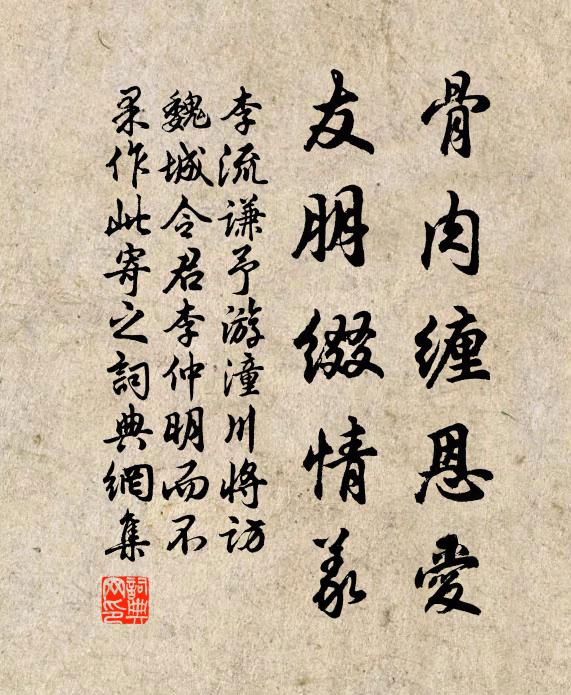 骨肉缠恩愛
友朋綴情義
李流謙予游潼川將訪
魏城令君李仲明而不
果作此寄之詞典網集
詞典網印